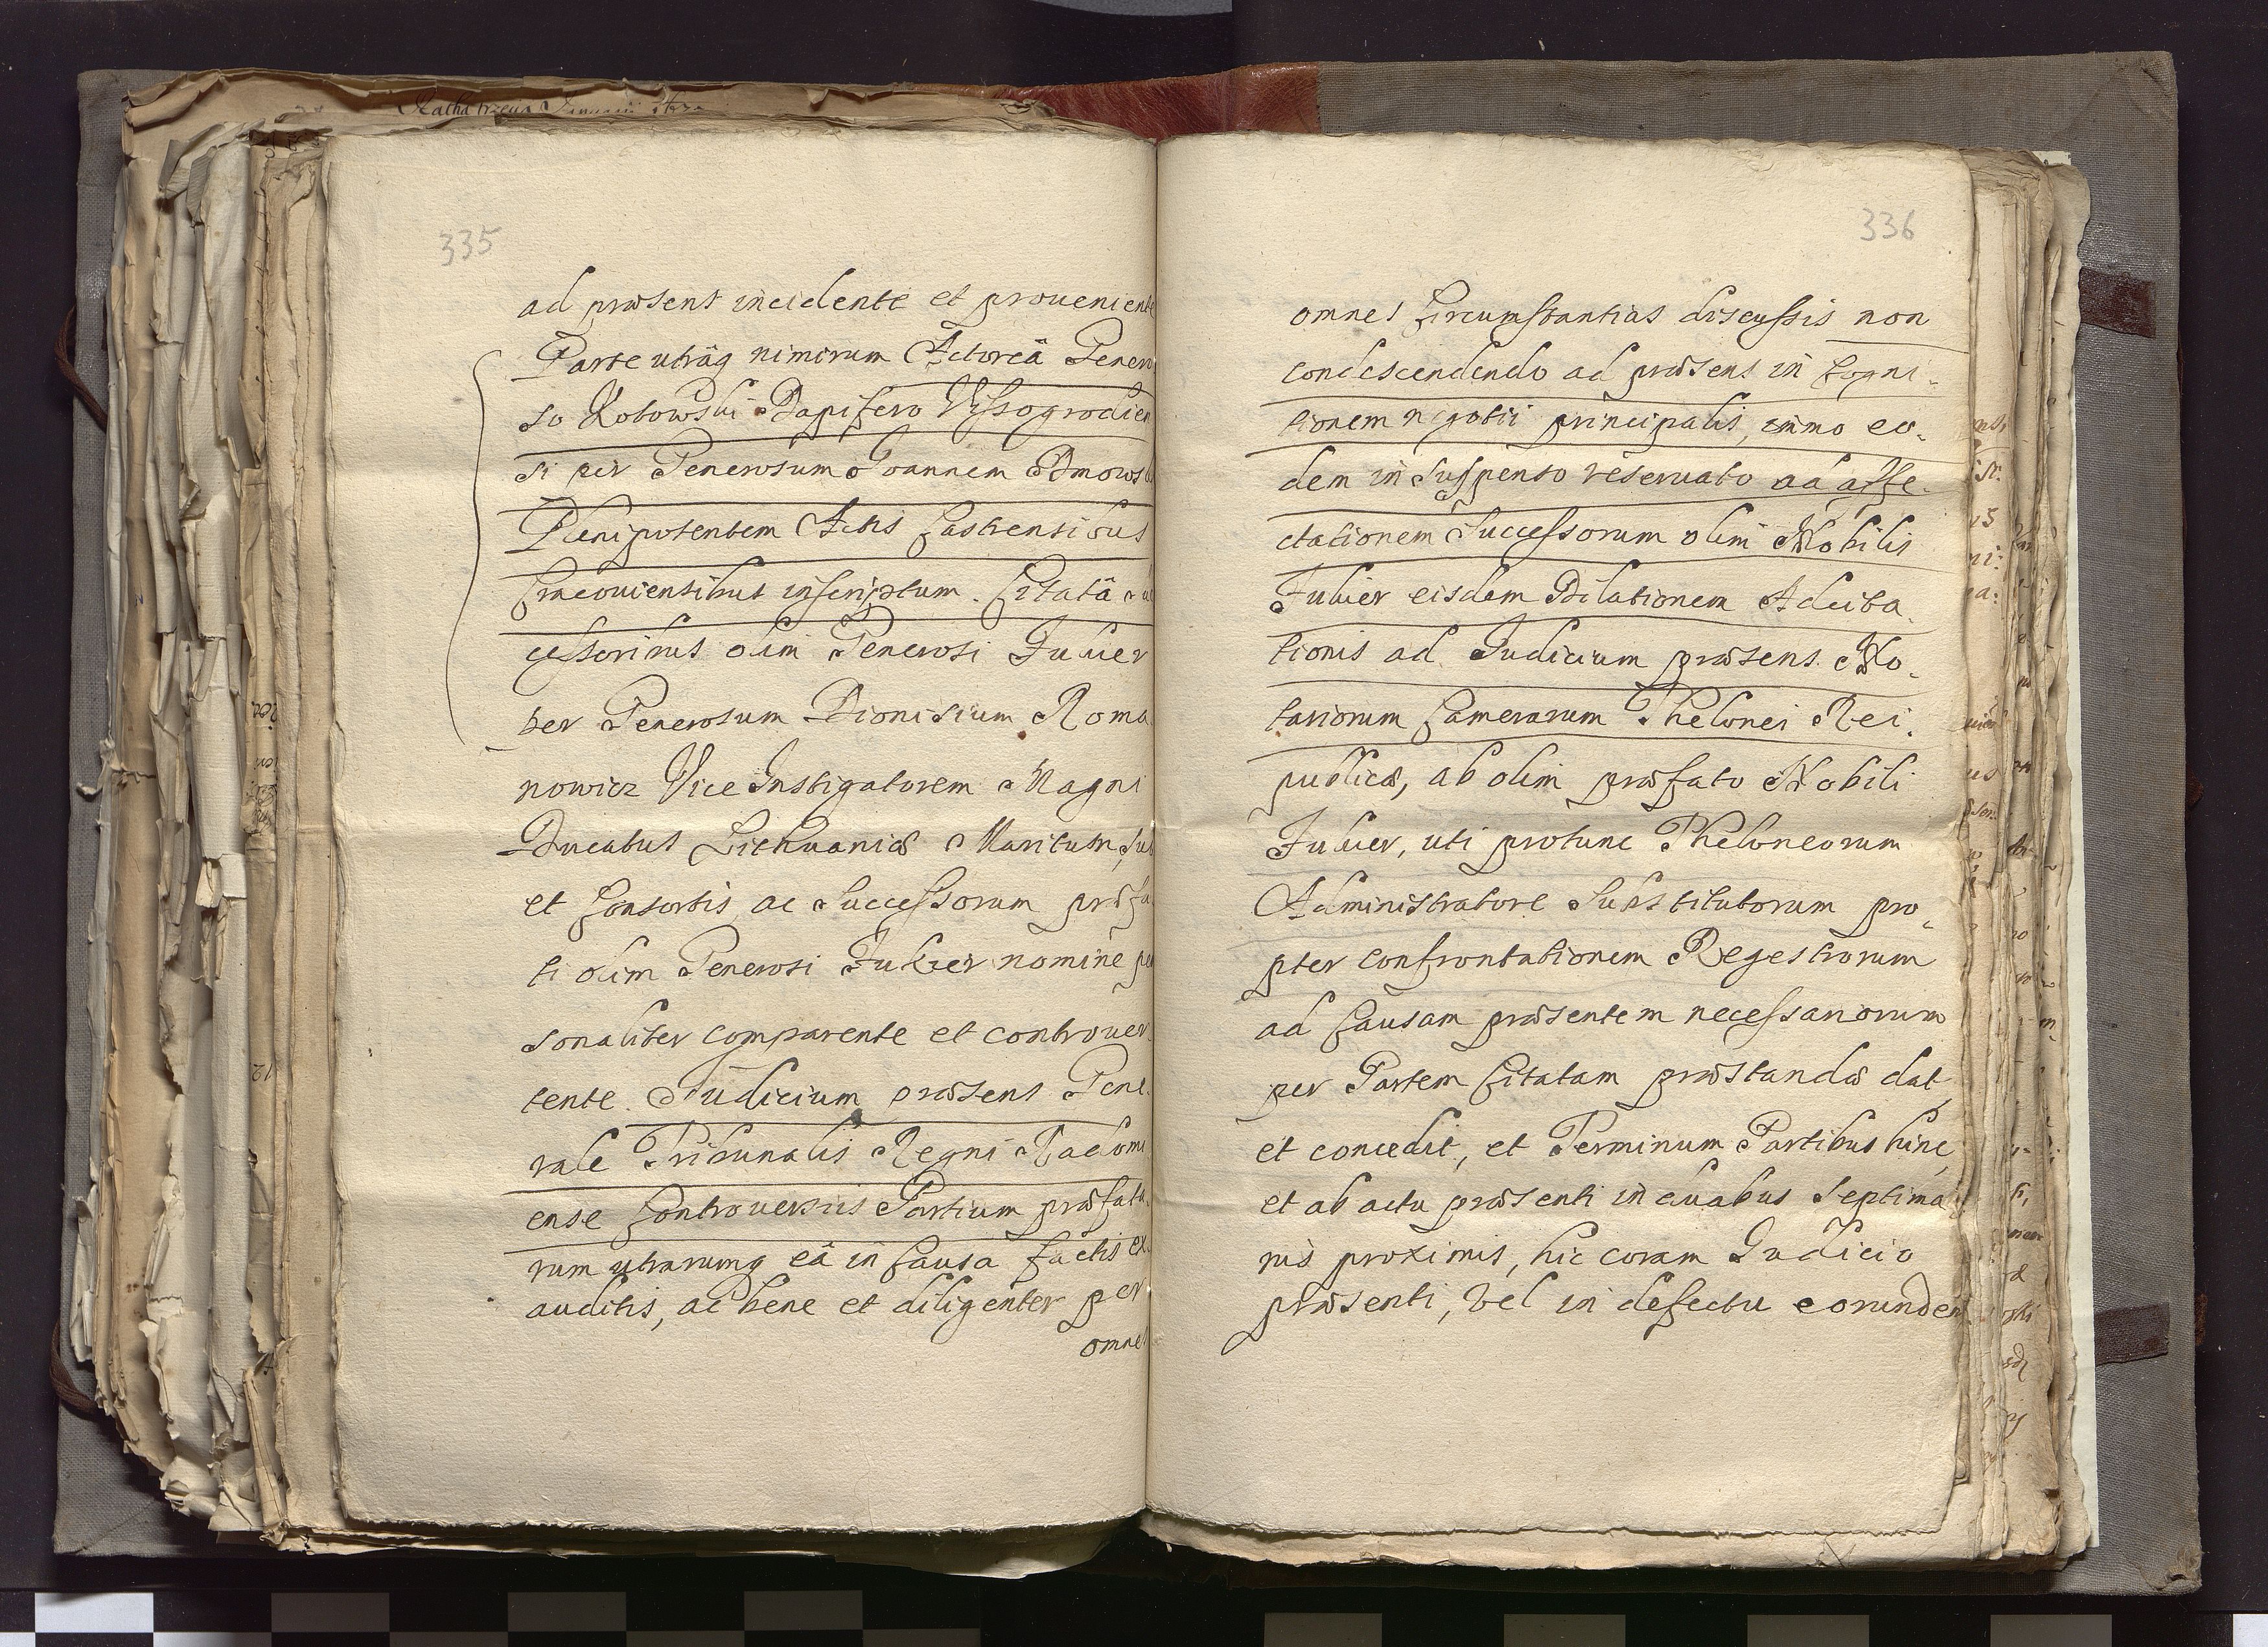 335
ad præsens incidente et proueniente
Parte utrâq nimirum Actoreâ Genero
so Kotowski Dapifero Vissogrodien
si per Generosum Joannem Dmows
Plenipotentem Actis Castrensibus
Cracouiensibus inscriptum. Citatâ
cessoribus olim Generosi Juluer
per Generosum Dionisium Roma
nowicz Vice Instigatorem Magni
Ducatus Lithuaniæ Maritum, su
et Consortis ac Successorum præfa
ti olim Generosi Juluer nomine per
sonaliter comparente et controuer
tente. Judicium præsens Gene
rale Tribunalis Regni Radomi
ense Controuersiis Partium præfata
rum utrarumq eâ in Causa factis ex
auditis, ac bene et diligenter per
omnes
336
omnes Circumstantias discussis non
condescendendo ad præsens in Cogni-
tionem negotii principalis, immo eo-
dem in suspenso reseruato ad affe-
ctationem Successorum olim Nobilis
Juluer eisdem Dilationem Adcita
tionis ad Judicium præsens No-
tariorum Camerarum Thelonei Rei-
publicæ, ab olim præfato Nobili
Juluer, uti protunc Theloneorum
Administratore Substitutorum pro-
pter confrontationem Regestrorum
ad Causam præsentem necessariorum
per Partem Citatam præstandæ dat,
et concedit, et Terminum Partibus hinc,
et ab actu præsenti in duabus Septima
nis proximis, hic coram Judicio
præsenti, vel in defectu eorundem